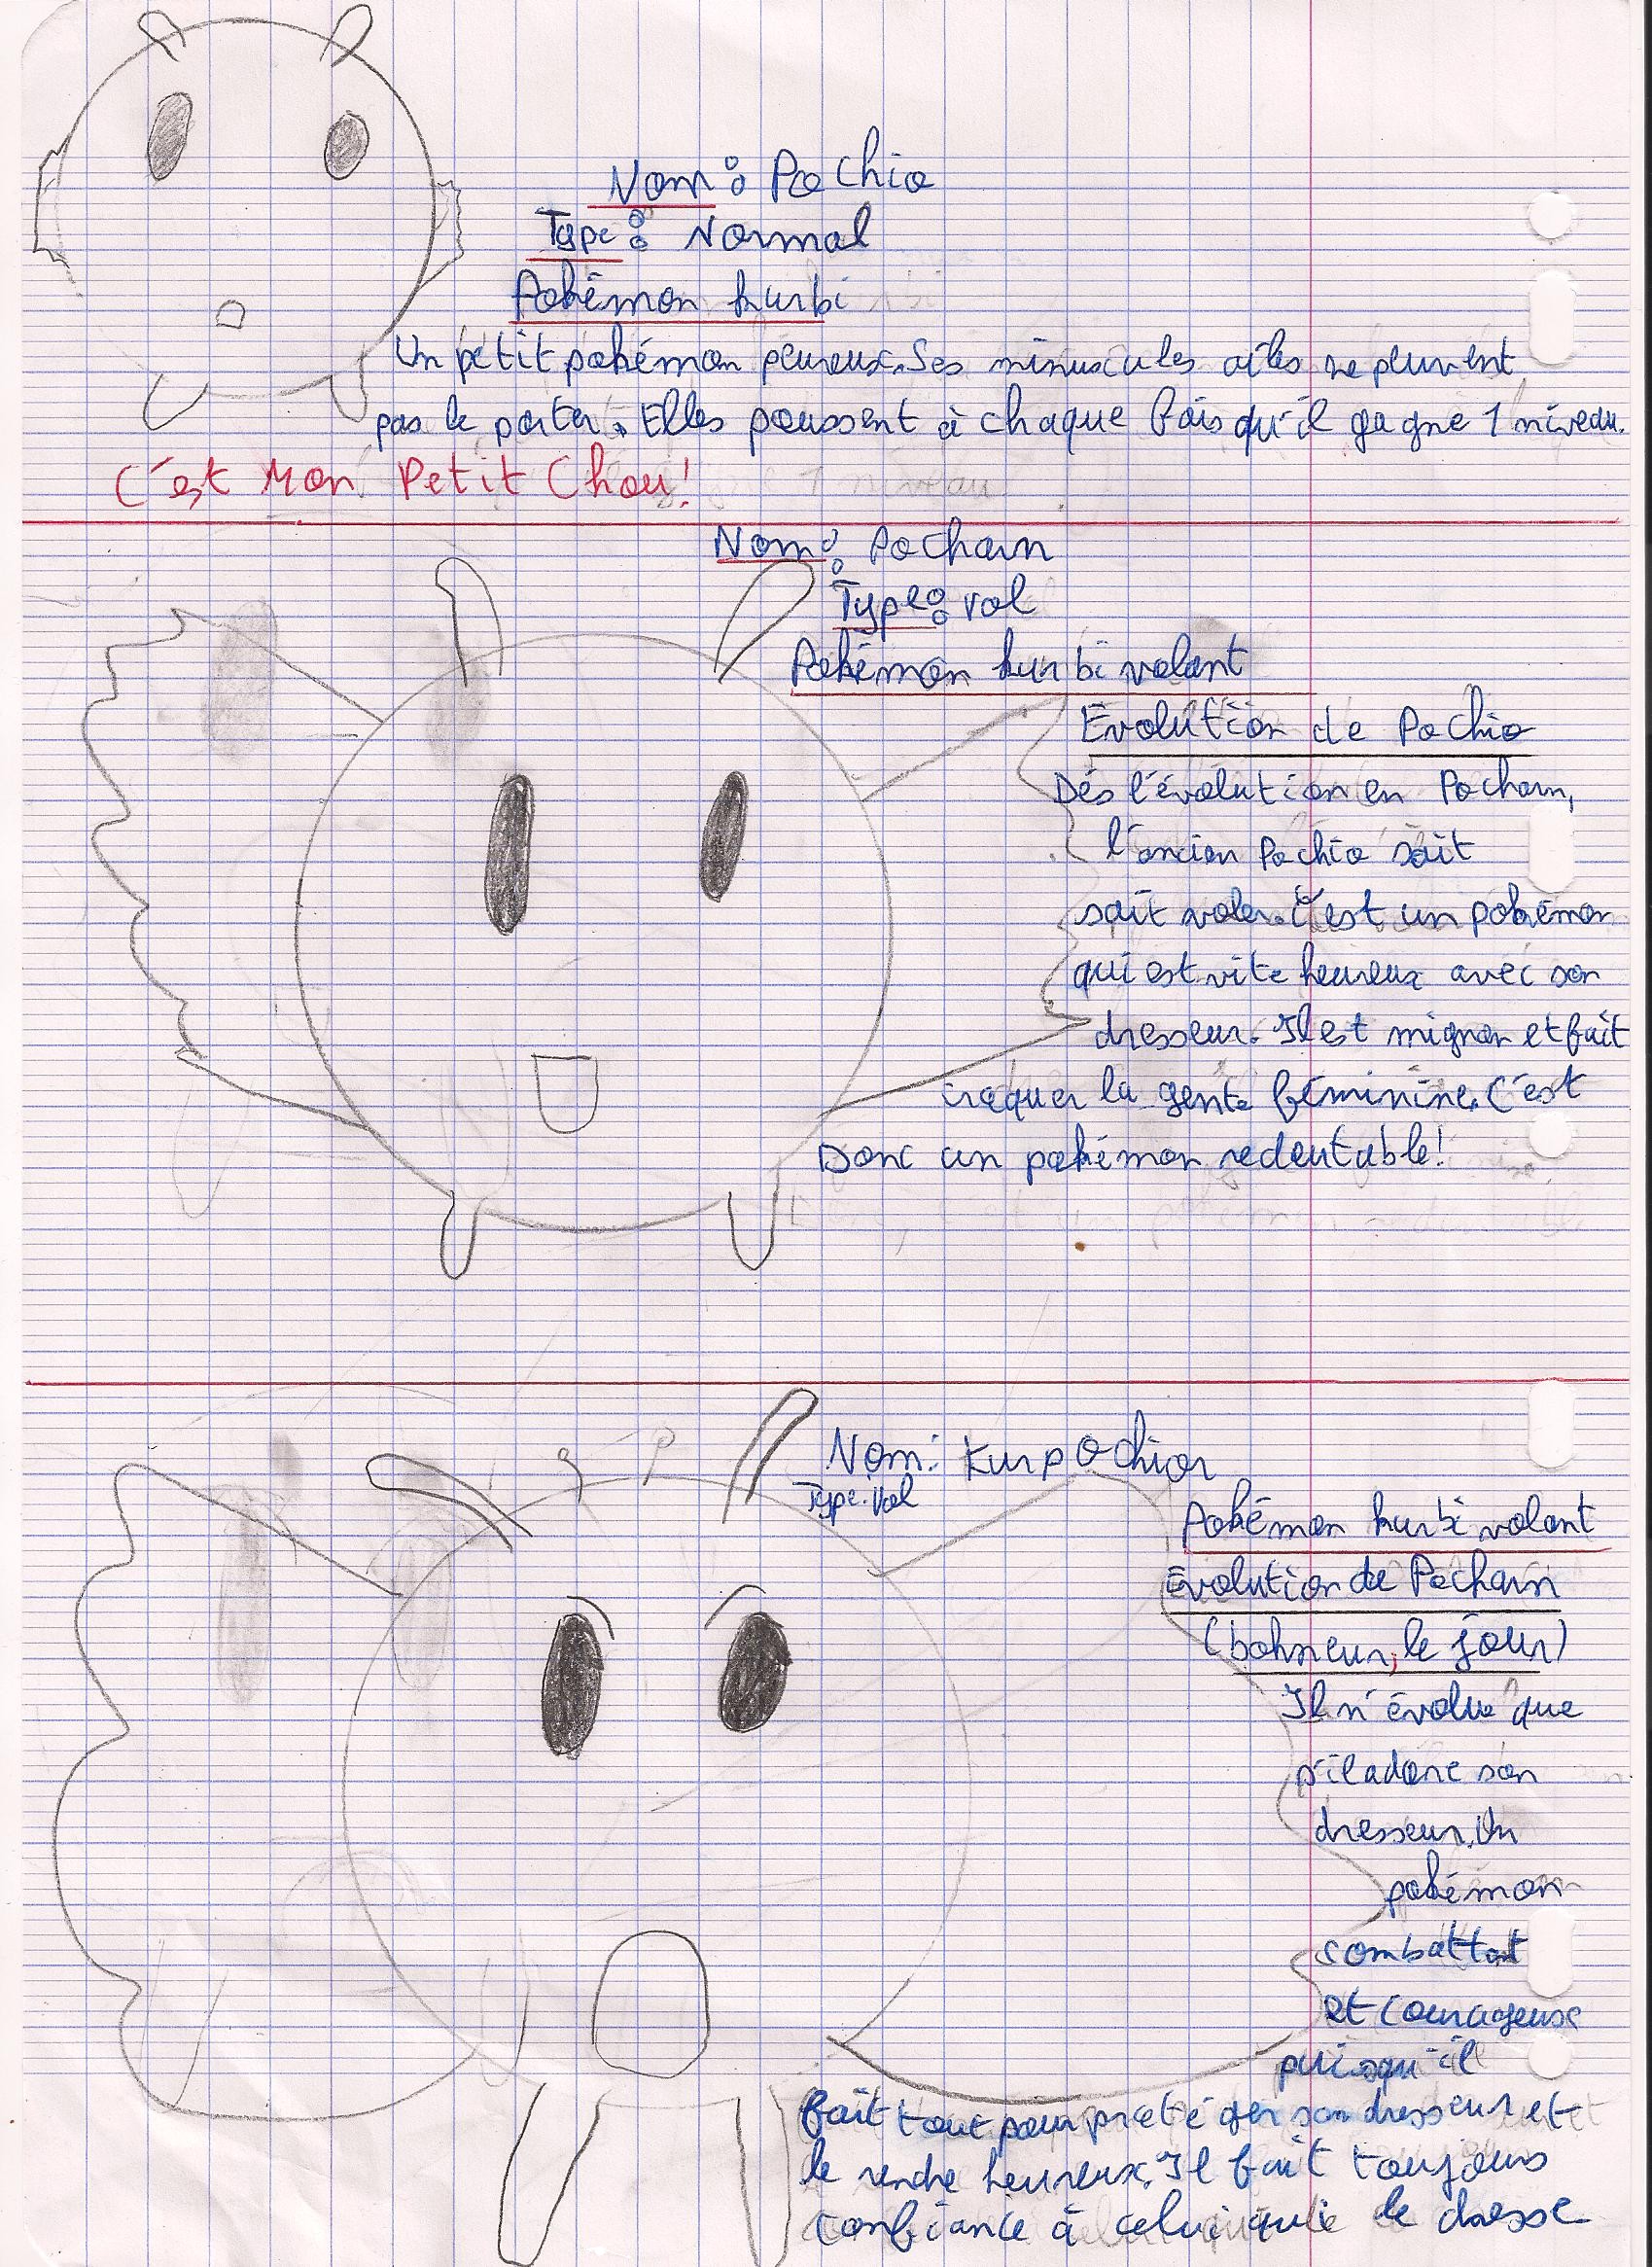 Nom : Pochio
Type : Normal
Pokémon kurbi
Un petit pokémon peureux. Ses minuscules ailes ne peuvent
pas le porter. Elles poussent à chaque fois qu'il gagne 1 niveau.
C'est Mon Petit Chou!
Nom : Pocharn
Type : vol
Pokémon kurbi volant
Evolution de Pochio
Dés l'évolution en Pocharn,
l'ancien Pochio sait
sait voler. C'est un pokémon
qui est vite heureux avec son
dresseur. Il est mignon et fait
craquer la gente féminine. C'est
Donc un pokémon redoutable!
Nom: Kurpochior
Type: Vol
Pokémon kurbi volant
Evolution de Pocharn
(bohneur, le jour)
Il n'évolue que
s'il adore son
dresseur. Un
pokémon
combattant
et courageux
puisqu'il
fait tout pour protéger son dresseur et
le rendre heureux. Il fait toujours
confiance à celui qui le dresse